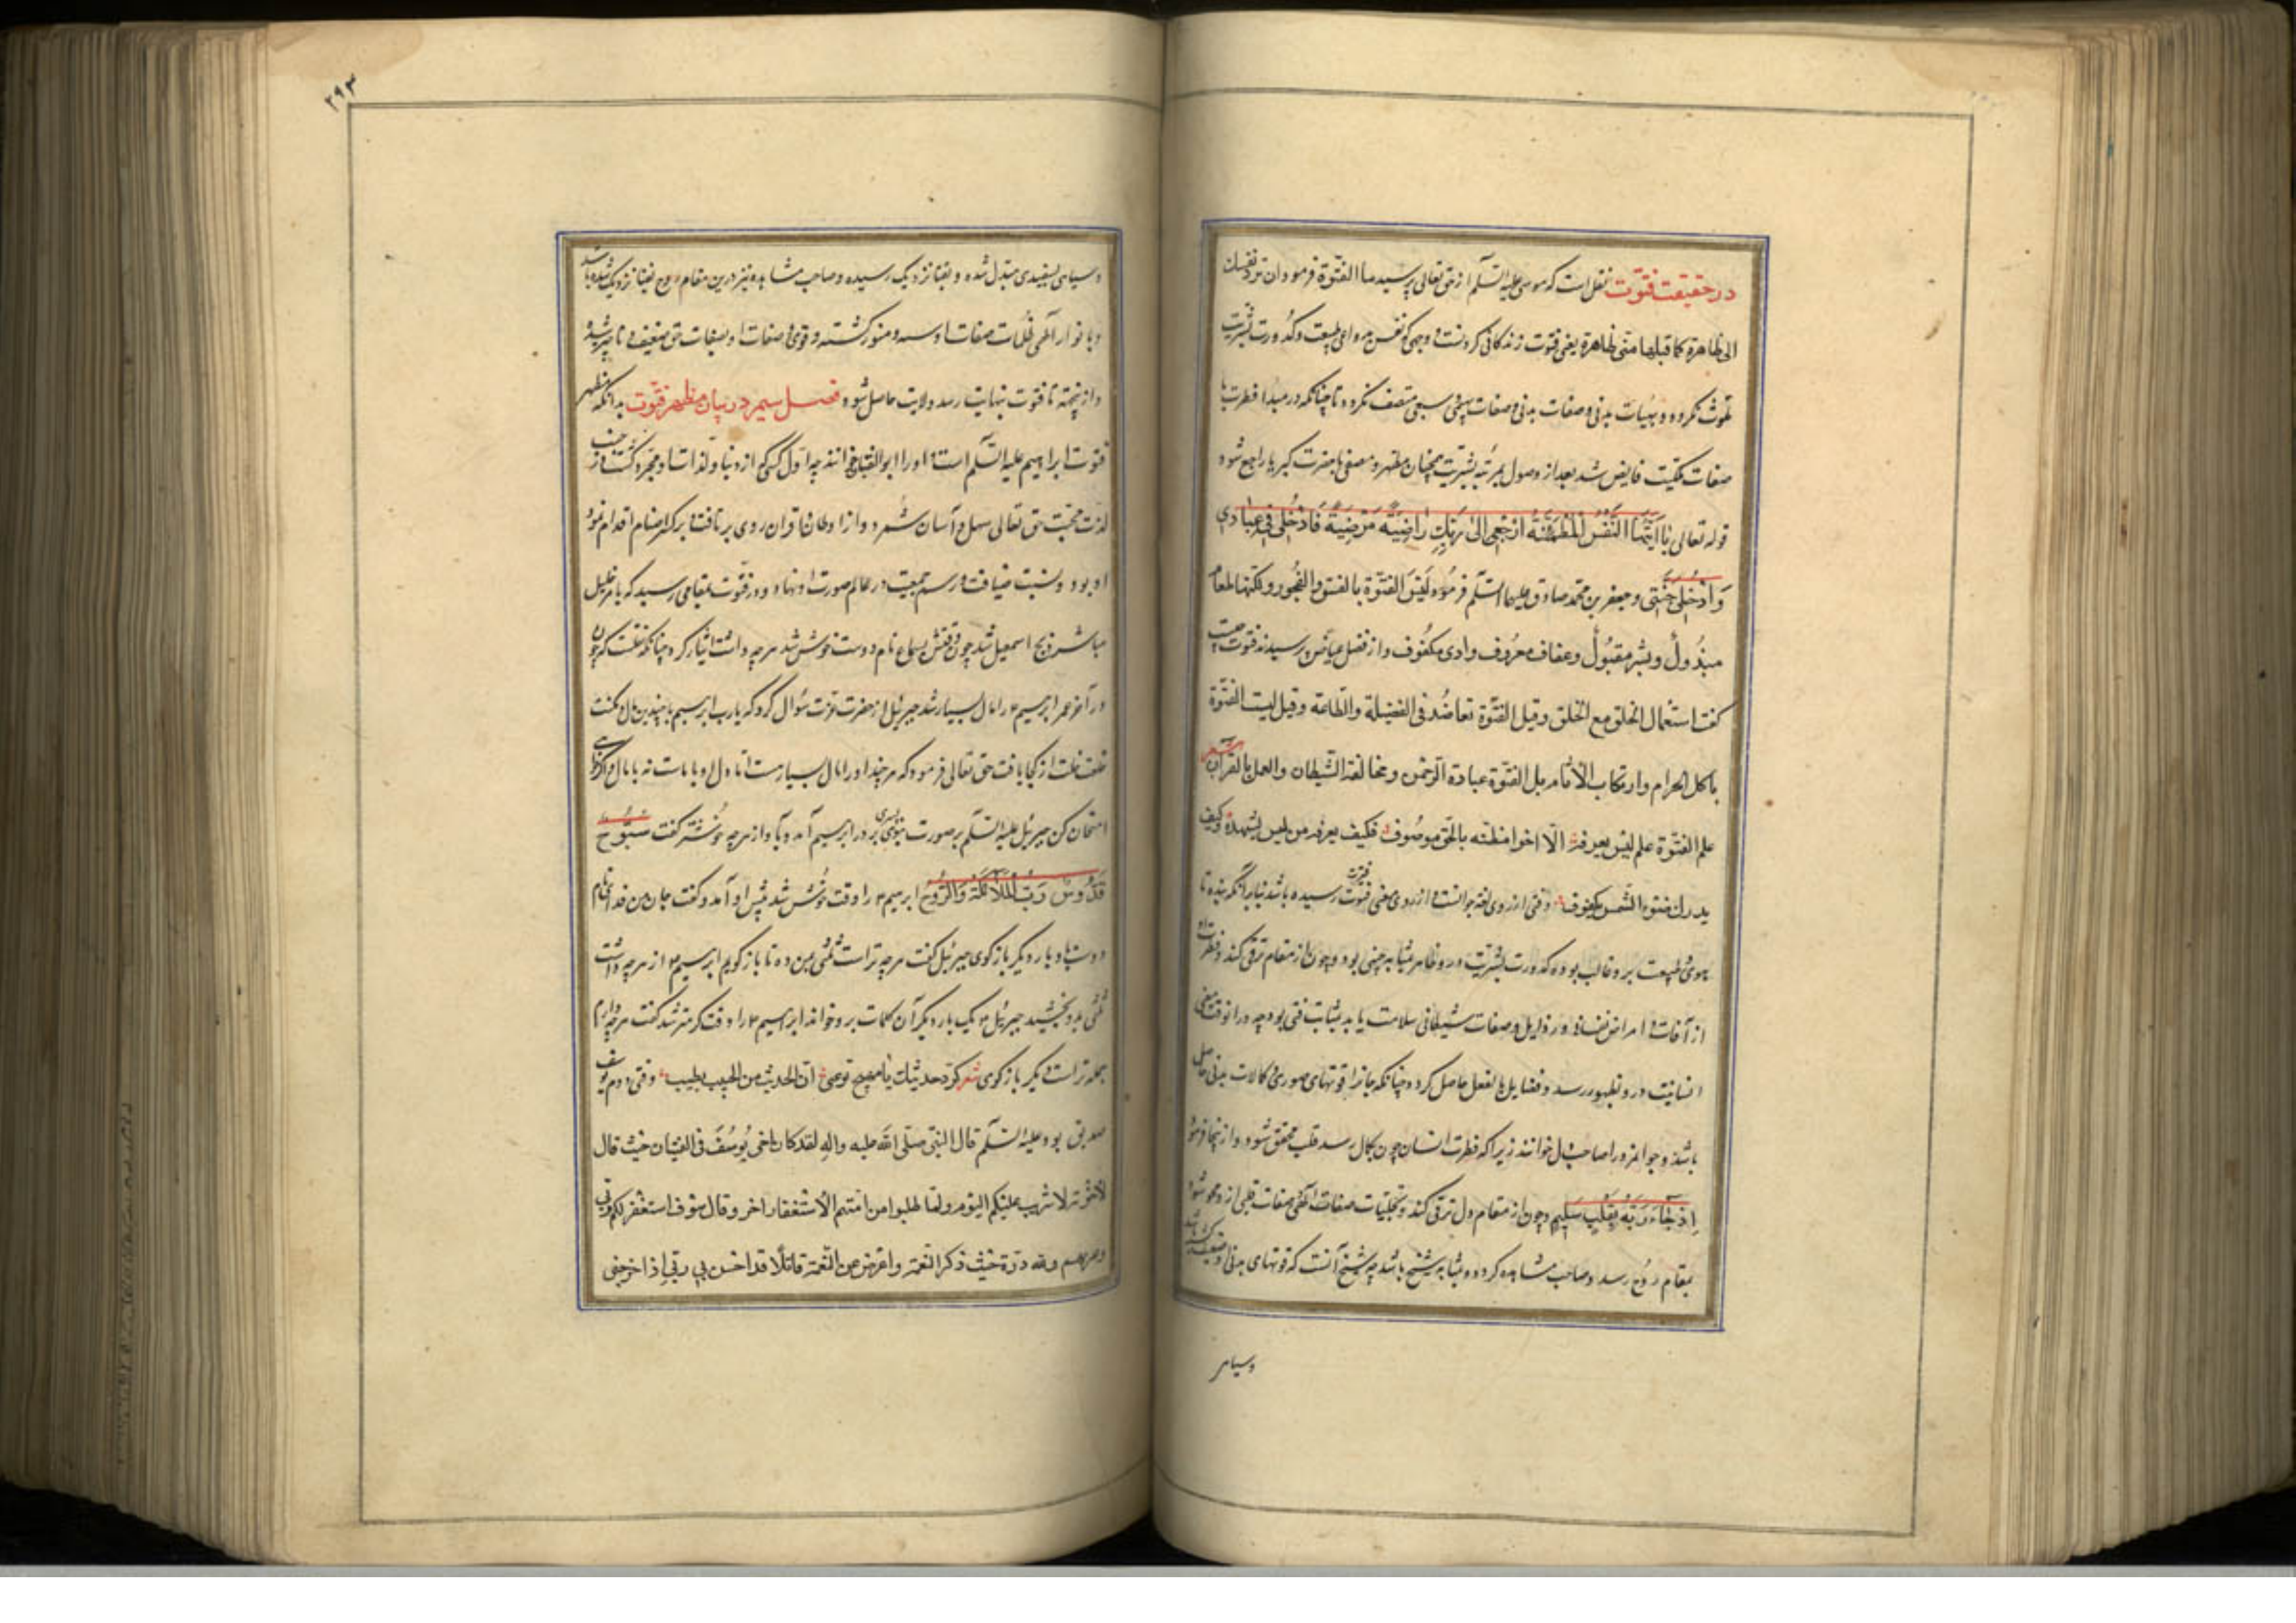 در حقیقت فتوت نقل است که موسی علیه السلم از حق تعالی پرسید ما الفتوة فرمود ان ترد نفسک
الی طاهرة کما قبلتها منی طاهرة یعنی فتوت زندکانی کردنست بر وجهی که نفس بهوای طبیعت وکدورت بشریت
ملوث نکردد وبهیات بدنی وصفات بهیمی وسبعی متصف نکردد تا چنانکه در مبدا فطرت با
صفات ملکیت فایض شد بعد از وصول بمرتبه بشریت همچنان مطهر ومصفی بحضرت کبریا راجع شود
قوله تعالی یا ایتها النفس المطمئنة ارجعی الی ربک راضیة مرضیة فادخلی فی عبادی
وادخلی جنتی وجعفر بن محمد صادق علیهما السلم فرمود لیس الفتوة بالفسق والفجور ولکنها طعام
مبذول وبشر مقبول وعفاف معروف واذی مکفوف واز فضل عیاض پرسیدند فتوت چیست
کفت استعمال الخلق مع الخلق وقیل الفتوة تعاضد فی الفضیلة والطاعة وقیل لیست الفتوة
باکل الحرام وارتکاب الآثام بل الفتوة عبادة الرحمن ومخالفة الشیطان والعمل بالقرآن شعر
علم الفتوة علم لیس یعرفه الا اخو فطنة بالحق موصوف فکیف یعرفه من لیس یشهده وکیف
یدرک ضوء الشمس مکفوف وفتی از روی لغة جوانست واز روی معنی فتوت رسیده باشد بنابر آنکه بنده تا
هوی وطبیعت برو غالب بود وکدورت بشریت درو ظاهر بمثابه صبی بود وچون از مقام ترقی کند وفطرت او
از آفات وامراض نفسانی ورذایل وصفات شیطانی سلامت یابد بمثابت فتی بود چه در آن وقت معنی
انسانیت درو بظهور رسد وفضایل بالفعل حاصل کردد چنانکه جوانرا قوتهای صوری وکمالات بدنی حاصل
باشد وجوانمرد را صاحب دل خوانند زیرا که فطرت انسان چون بکمال رسد قلب محقق شود واز اینجا فرمود
اذ جاء ربه بقلب سلیم وچون از مقام دل ترقی کند وبتجلیات صفات الهی صفات قلبی ازو محو شود
بمقام روح رسد وصاحب مشاهده کردد وبمثابه شیخ باشد چه شیخ آنست که قوتهای بدنی او ضعیف کشته باشد
وسیاهی
۲۹۳
وسیاهی بسفیدی مبدل شده وبفنا نزدیک رسیده وصاحب مشاهده نیز درین مقام روح بفنا نزدیک شده باشد
وبانوار الهی ظلمات صفات او منور کشته وقوی وصفات او بصفات حق ضعیف وناچیز شده
واز اینجهة تا فتوت بنهایت رسد ولایت حاصل شود فصل سیم در بیان مظهر فتوت بدانکه مظهر
فتوت ابراهیم علیه السلم است واو را ابو الفتیان خوانند چه اول کسی که از دنیا ولذات او مجرد کشت
لذت محبت حق تعالی سهل وآسان شمرد واز اوطان واقران روی بر تافت وبر کسر اصنام اقدام نمود
او بود وسنت ضیافت ورسم جمعیت در عالم صورت او نهاد ودر فتوت بمقامی رسید که بامر خلیل
مباشر ذبح اسمعیل شد چون وقتش بسماع نام دوست خوش شد هر چه داشت ایثار کرد چنانکه نقلست که چون
در آخر عمر ابرهیم را مال بسیار شد جبرئیل از حضرت عزت سؤال کرد که یا رب ابرهیم با چندین مال ومکنت
خلعت خلت از کجا یافت حق تعالی فرمود که هر چند او را مال بسیارست اما دل او با ماست نه با مال واکر خواهی
امتحان کن جبرئیل علیه السلم بر صورت بشری بر در ابرهیم آمد وبآواز هر چه خوشتر کفت سبوح
قدوس رب الملائکة والروح ابرهیم را وقت خوش شد پیش او آمد وکفت جان من فدای نام
دوست باد بار دیکر باز کوی جبرئیل کفت هر چه تراست ثلثی بمن ده تا باز کویم ابرهیم از هر چه داشت
ثلثی بدو بخشید جبرئیل یک بار دیکر آن کلمات برو خواند ابرهیم را وقت خوشتر شد کفت هر چه دارم
جمله تراست دیکر باز کوی شعر کرر حدیثک یا مهیج لوعتی ان الحدیث من الحبیب طبیب وفتی دوم یوسف
صدیق بود علیه السلم قال النبی صلی الله علیه واله لقد کان اخی یوسف فی الفتیان حیث قال
لاخوته لا تثریب علیکم الیوم ولما طلبوا من ابیهم الاستغفار اخر وقال سوف استغفر لکم ربی
ولله دره حیث ذکر النعمة واعرض عن النقمة قائلا قد احسن بی ربی اذ اخرجنی